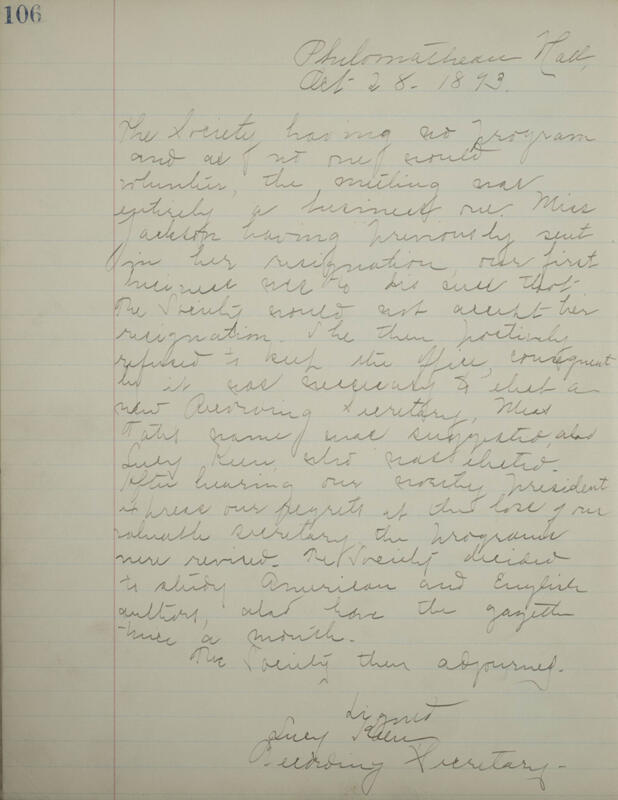 106
Philomathean Hall,
Oct 28. 1893.
The Society having no program
and as not one would
volunter, the meeting was
entirely a business one. Miss
Jackson having previously sent
in her resignation, our first
business was to that
the Society would not accept her
resignation. She then positively
refused to keep the office, consequent
ly it was necessary to elect a
new Recording Secretary, Miss
name was suggested, also
Lucy Keen, who was elected.
After hearing our worthy president
express our regrets at the loss of our
valuable secretary the programs
were revised. The Society decided
to study American and English
authors, also have the gazette
a month.
The Society then adjourned.
Signed
Lucy Keen,
Recording Secretary-